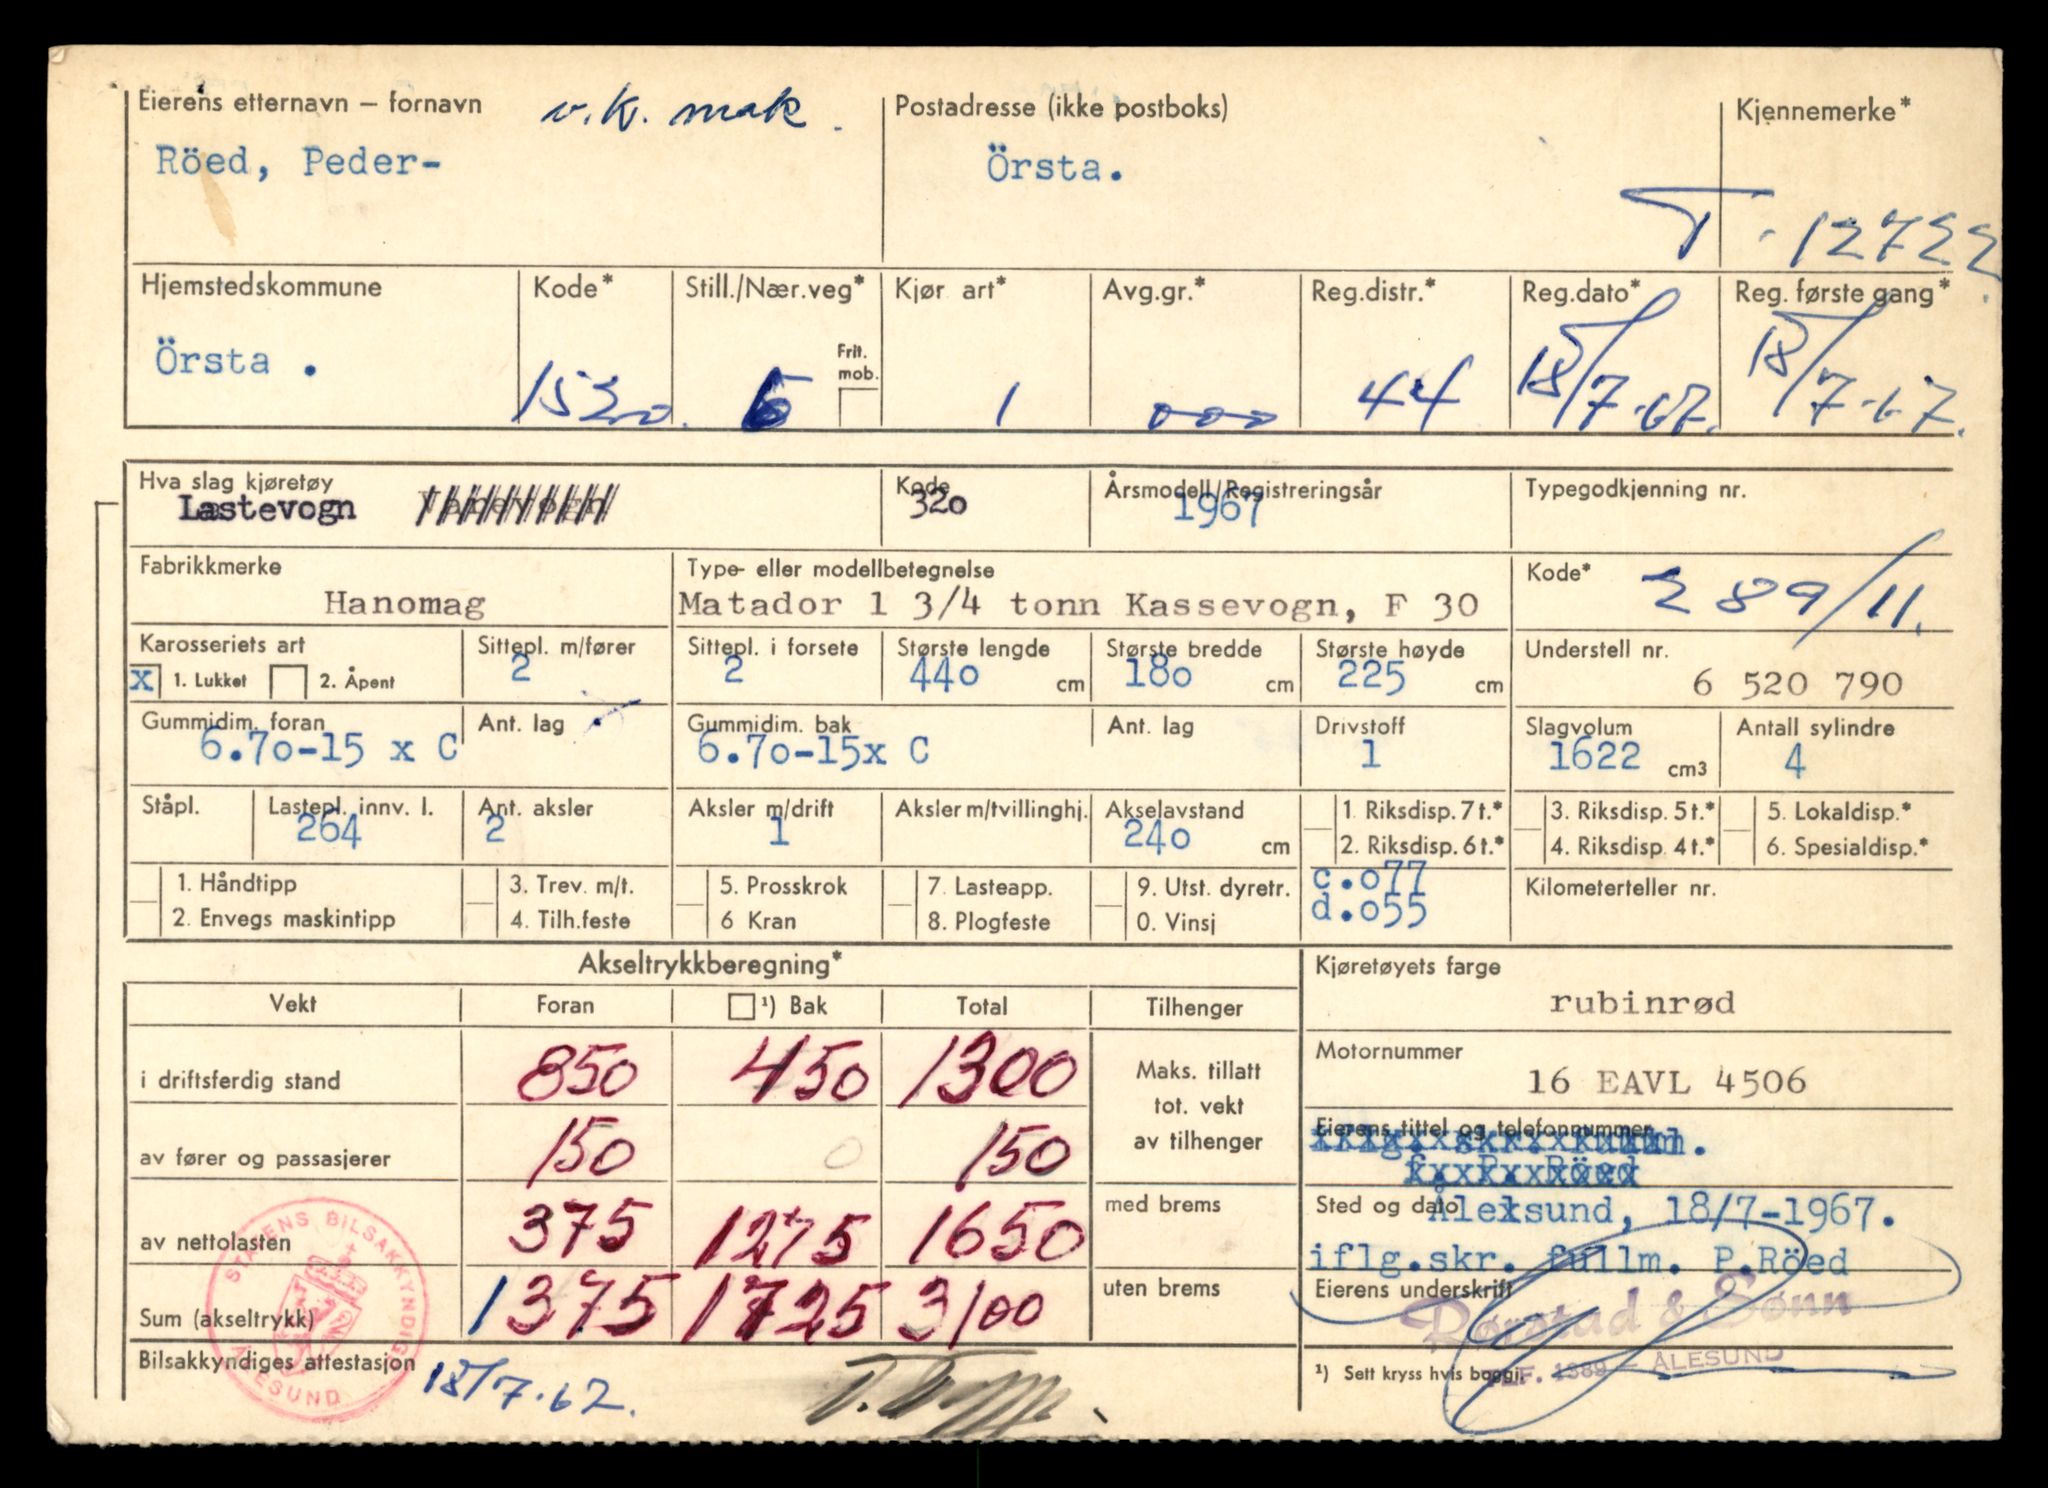 Eierens etternavn – fornavn v.k. mak. Postadresse (ikke postboks) Kjennemerke*
Röed, Peder- Örsta.
T - 12722
Hjemstedskommune Kode* Still./Nær.veg* Kjør art* Avg.gr.* Reg.distr.* Reg.dato* Reg. første gang*
Örsta . 1520. 6 Frit. mob. 1 000 44 18/7-67. 18/7-67.
Hva slag kjøretøy Kode Årsmodell/Registreringsår Typegodkjenning nr.
Lastevogn Varevogn 320 1967
Fabrikkmerke Type- eller modellbetegnelse Kode* 289/11.
Hanomag Matador 1 3/4 tonn Kassevogn, F 30
Karosseriets art Sittepl. m/fører Sittepl. i forsete Største lengde Største bredde Største høyde Understell nr.
x 1. Lukket 2. Åpent 2 2 440 cm 180 cm 225 cm 6 520 790
Gummidim. foran Ant. lag Gummidim. bak Ant. lag Drivstoff Slagvolum Antall sylindre
6.70-15 x C 6.70-15x C 1 1622 cm3 4
Ståpl. Lastepl. innv. l. Ant. aksler Aksler m/drift Aksler m/tvillinghj. Akselavstand 1. Riksdisp. 7 t.* 3. Riksdisp. 5 t.* 5. Lokaldisp.*
264 2 1 240 cm 2. Riksdisp. 6 t.* 4. Riksdisp. 4 t.* 6. Spesialdisp.*
1. Håndtipp 3. Trev. m/t. 5. Prosskrok 7. Lasteapp. 9. Utst. dyretr. c.o77 Kilometerteller nr.
2. Envegs maskintipp 4. Tilh.feste 6 Kran 8. Plogfeste 0. Vinsj d.o55
Akseltrykkberegning* Kjøretøyets farge
Vekt Foran ¹) Bak Total Tilhenger rubinrød
i driftsferdig stand 850 450 1300 Maks. tillatt tot. vekt av tilhenger Motornummer
16 EAVL 4506
av fører og passasjerer 150 0 150 Eierens tittel og telefonnummer
iflg. skr. fullm.
P. Röed
av nettolasten 375 1275 1650 med brems Sted og dato Ålesund, 18/7-1967.
iflg.skr. fullm. P.Röed
Sum (akseltrykk) 1375 1725 3100 uten brems Eierens underskrift
Rørstad & Sønn
TLF. 1389 – ÅLESUND
Bilsakkyndiges attestasjon 18/7-67. ¹) Sett kryss hvis boggi.
STATENS BILSAKKYNDIGE
ÅLESUND